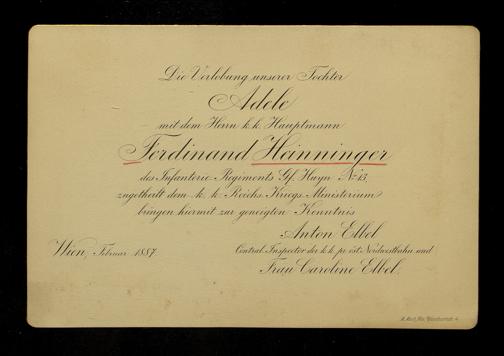 Die Verlobung unserer Tochter
Adele
mit dem Herrn k. k. Hauptmann
Ferdinand Heinninger
des Infanterie-Regiments Gf. Huyn No. 13,
zugetheilt dem k. k. Reichs-Kriegs-Ministerium
bringen hiermit zur geneigten Kenntnis
Anton Elbel
Central-Inspector der k. k. pr. öst. Nordwestbahn und
Frau Caroline Elbel.
Wien, Februar 1887.